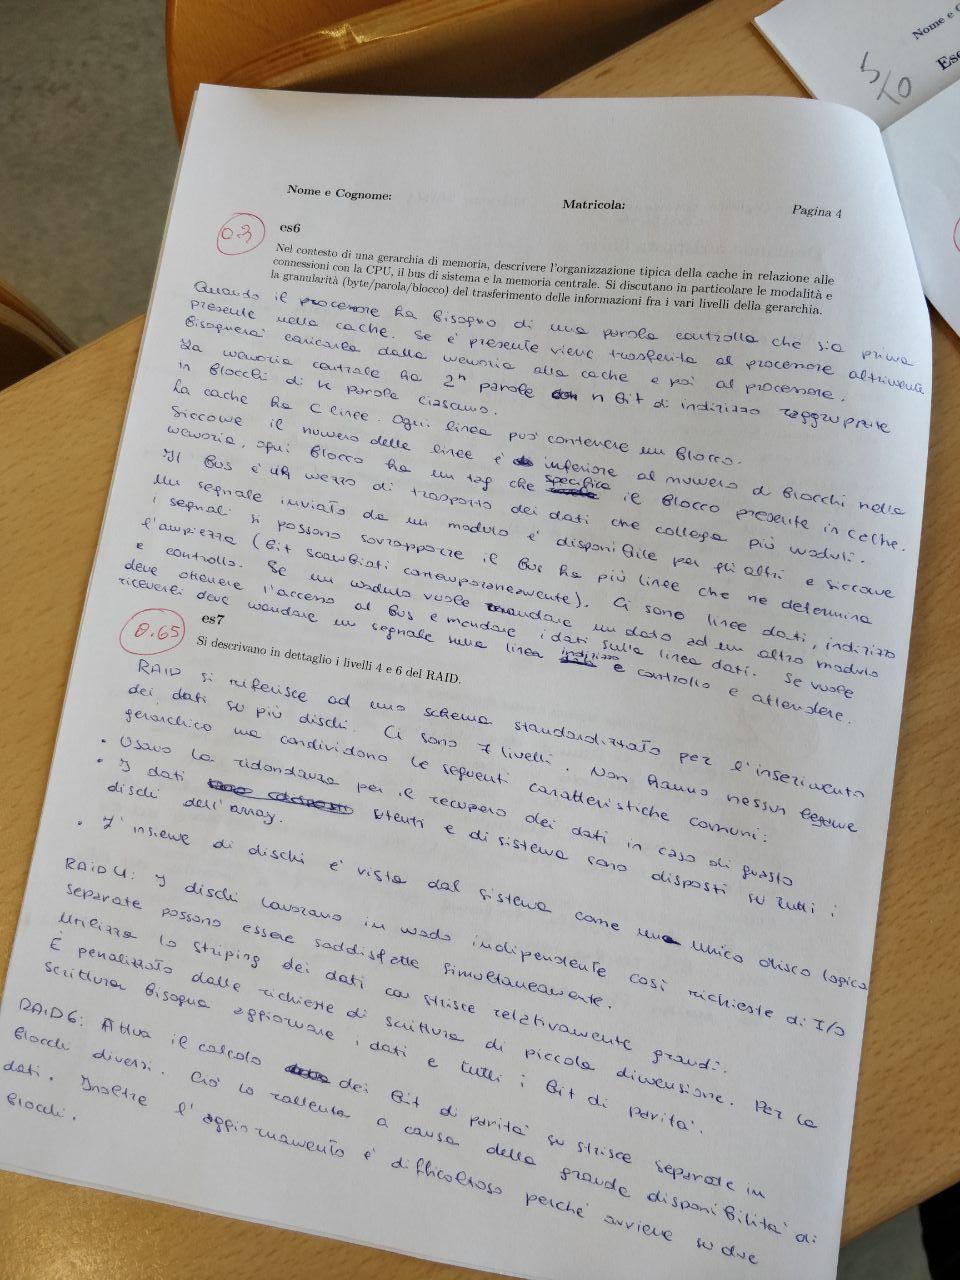 Nome e C
Ese
5/10
Nome e Cognome:
Matricola:
Pagina 4
es6
Nel contesto di una gerarchia di memoria, descrivere l'organizzazione tipica della cache in relazione alle
connessioni con la CPU, il bus di sistema e la memoria centrale. Si discutano in particolare le modalità e
la granularità (byte/parola/blocco) del trasferimento delle informazioni fra i vari livelli della gerarchia.
Quando il processore ha bisogno di una parola controlla che sia prima
presente nella cache. Se è presente viene trasferita al processore altrimenti
bisognerà caricarla dalla memoria alla cache e poi al processore.
La memoria centrale ha 2^n parole con n bit di indirizzo raggruppate
in blocchi di K parole ciascuno.
La cache ha C linee. Ogni linea può contenere un blocco.
Siccome il numero delle linee è inferiore al numero di blocchi nella
memoria, ogni blocco ha un tag che specifica il blocco presente in cache.
Il Bus è un mezzo di trasporto dei dati che collega più moduli.
Un segnale inviato da un modulo è disponibile per gli altri e siccome
i segnali si possono sovrapporre il bus ha più linee che ne determina
l'ampiezza (bit scambiati contemporaneamente). Ci sono linee dati, indirizzo
e controllo. Se un modulo vuole mandare un dato ad un altro modulo
deve ottenere l'accesso al bus e mandare i dati sulla linea dati. Se vuole
riceverli deve mandare un segnale sulla linea indirizzo e controllo e attendere.
0.65
es7
Si descrivano in dettaglio i livelli 4 e 6 del RAID.
RAID si riferisce ad uno schema standardizzato per l'inserimento
dei dati su più dischi. Ci sono 7 livelli. Non hanno nessun legame
gerarchico ma condividono le seguenti caratteristiche comuni:
• Usano la ridondanza per il recupero dei dati in caso di guasto
• I dati utenti e di sistema sono disposti su tutti i
dischi dell'array.
• L'insieme di dischi è vista dal sistema come un unico disco logico
RAID 4: I dischi lavorano in modo indipendente così richieste di I/O
separate possono essere soddisfatte simultaneamente.
Utilizza lo striping dei dati con strisce relativamente grandi.
È penalizzato dalle richieste di scrittura di piccola dimensione. Per la
scrittura bisogna aggiornare i dati e tutti i bit di parità.
RAID 6: Attua il calcolo dei bit di parità su strisce separate in
blocchi diversi. Ciò lo rallenta a causa della grande disponibilità di
dati. Inoltre l'aggiornamento è difficoltoso perché avviene su due
blocchi.